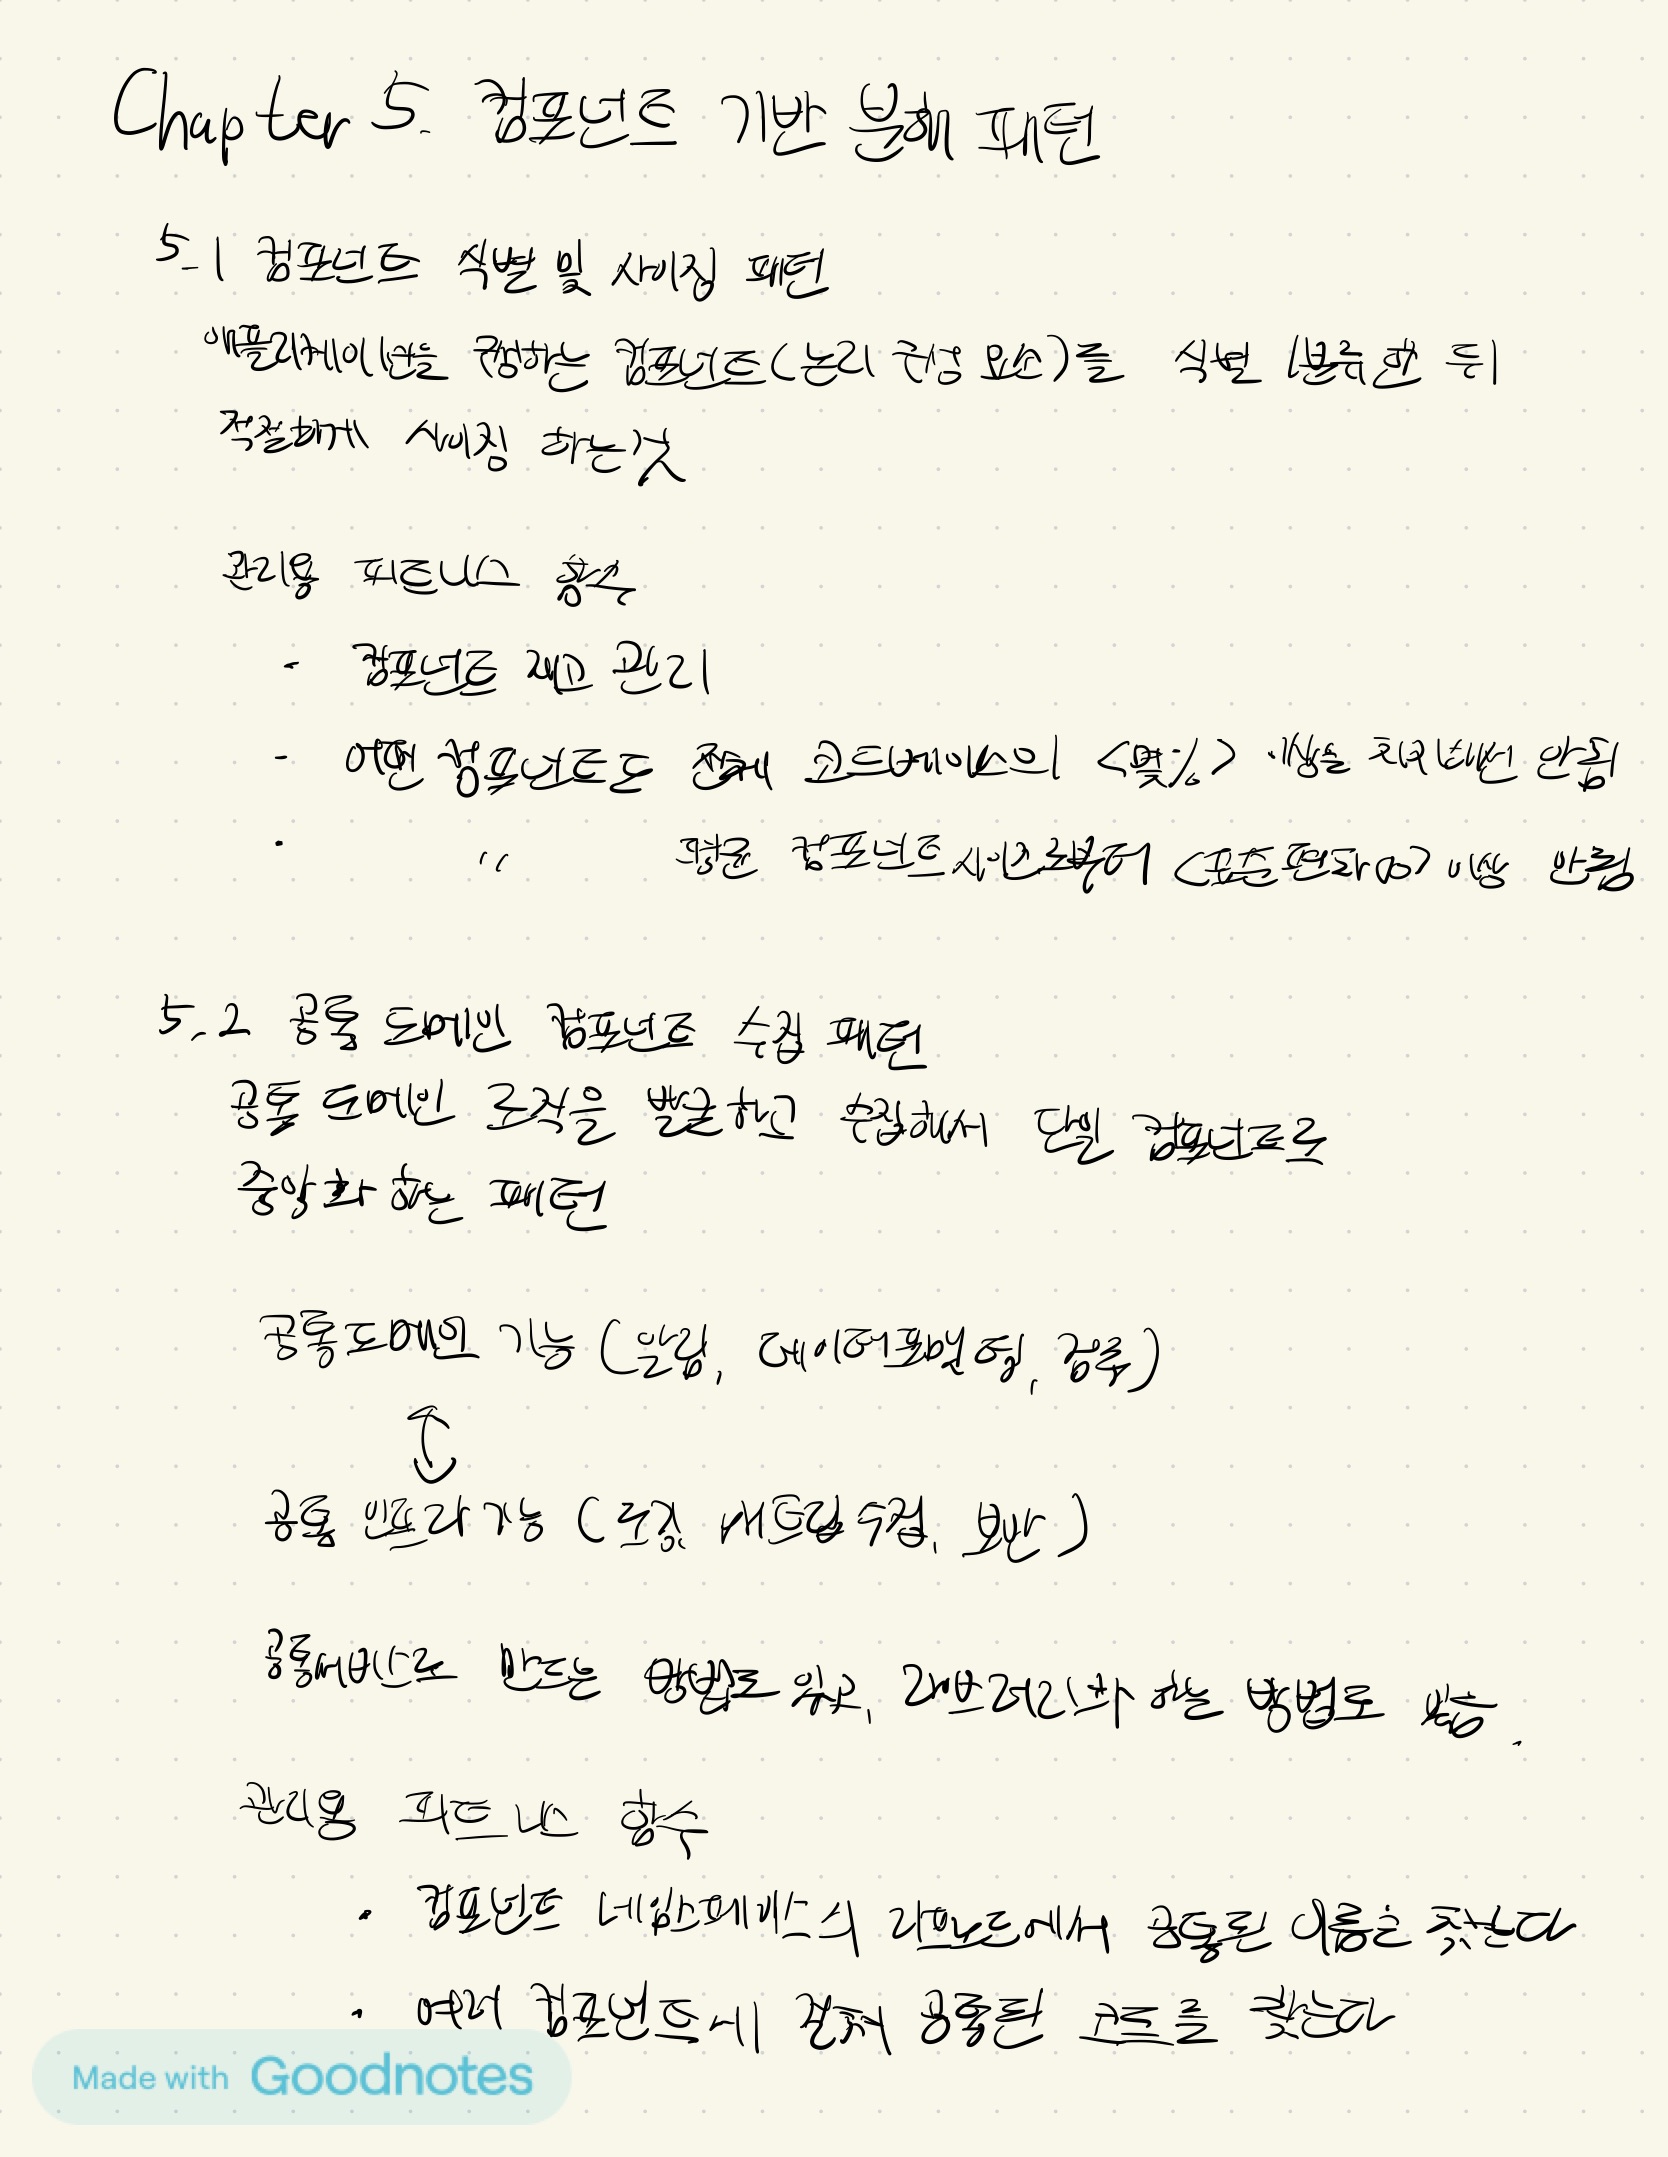 Chapter 5. 컴포넌트 기반 분해 패턴
5.1 컴포넌트 식별 및 사이징 패턴
애플리케이션을 구성하는 컴포넌트(논리 구성 요소)를 식별/분류한 뒤
적절하게 사이징 하는것
관리용 피트니스 함수
- 컴포넌트 재고 관리
- 어떤 컴포넌트도 전체 코드베이스의 <몇%> 이상을 차지해선 안됨
· " 평균 컴포넌트 사이즈로부터 <표준편차 ∞> 이상 안됨
5.2 공통 도메인 컴포넌트 수집 패턴
공통 도메인 로직을 발굴하고 수집해서 단일 컴포넌트로
중앙화 하는 패턴
공통도메인 기능 (알림, 데이터포맷팅, 검증)
↕
공통 인프라 기능 (로깅, 메트릭 수집, 보안)
공통서비스로 만드는 방법도 있고, 라이브러리화 하는 방법도 있음.
관리용 피트니스 함수
· 컴포넌트 네임스페이스의 리프노드에서 공통된 이름을 찾는다
· 여러 컴포넌트에 걸쳐 공통된 코드를 찾는다
Made with Goodnotes